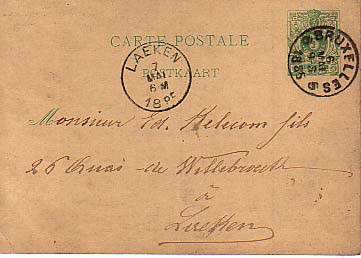 CARTE POSTALE
POSTKAART
LAEKEN
7
MAI
6 M
1885
BRUXELLES 5
Monsieur Ed. fils
26 Quai de Willebroeck
à
Laeken